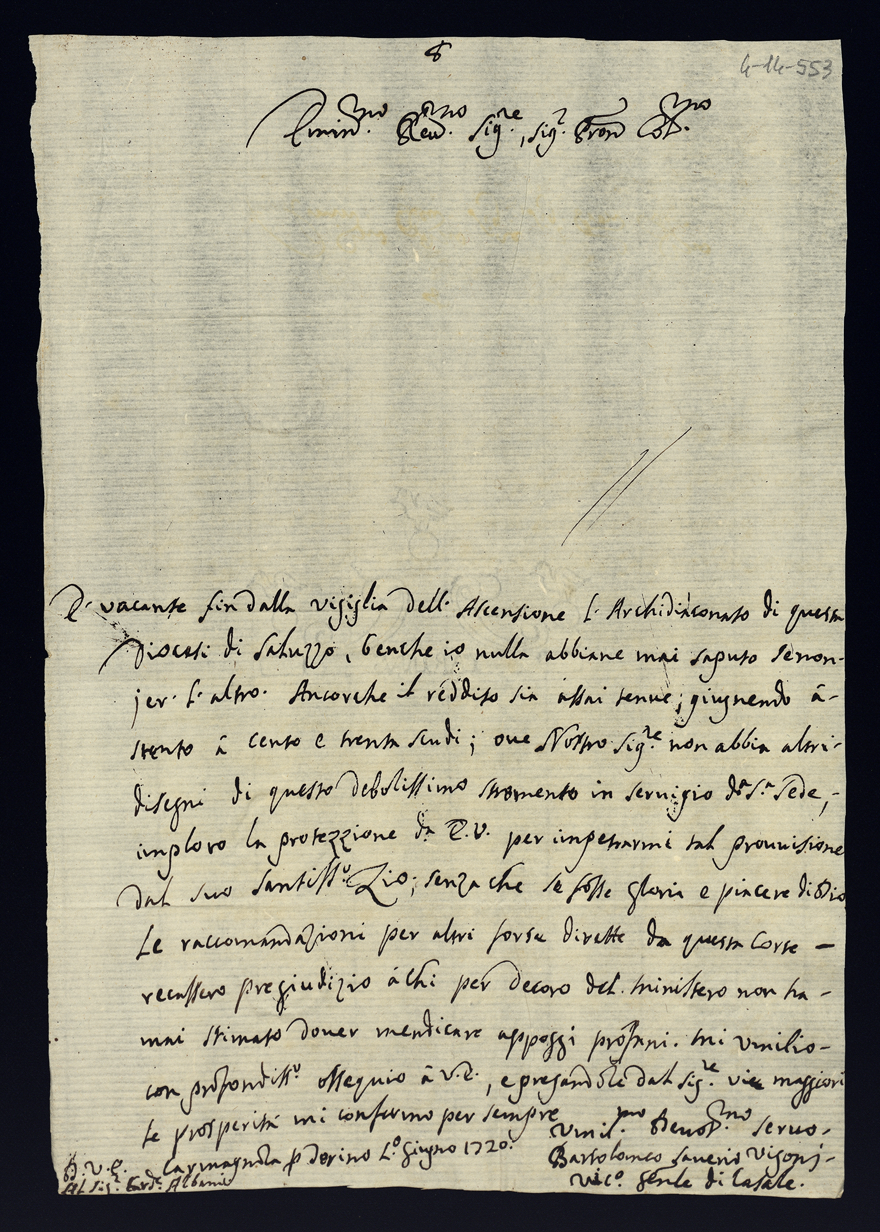 8
4-14-553
Emin.mo Rev.mo Sig.re, Sig.r Pron Col.mo
E' vacante fin dalla vigiglia dell' Ascensione l' Archidiaconato di questa
Diocesi di Saluzzo, benche io nulla abbiane mai saputo senon-
jer l' altro. Ancorche il reddito sia assai tenue, giugnendo à-
stento à cento e trenta scudi; oue Nostro Sig.re non abbia altri-
disegni di questo debolissimo stromento in seruigio d.a S.a Sede,-
imploro la protezzione da E.V. per impetrarmi tal prouuisione
dal suo Santiss.o Zio; senza che se fosse gloria e piacere di Dio
le raccomandazioni per altri forse dirette da questa Corte -
recassero pregiudizio à chi per decoro del ministero non ha-
mai stimato douer mendicare appoggi profani. Mi vmilio-
con profondiss.o ossequio à V.E., e pregandole dal Sig.re vie maggiori
le prosperità mi confermo per sempre
D.V.E. Carmagnola p Torino L.o Giugno 1720.
Al Sig.r Card. Albani
Vmil.mo Deuot.mo Seruo-
Bartolomeo Sauerio Vigonj-
Vic.o Genle di Casale.